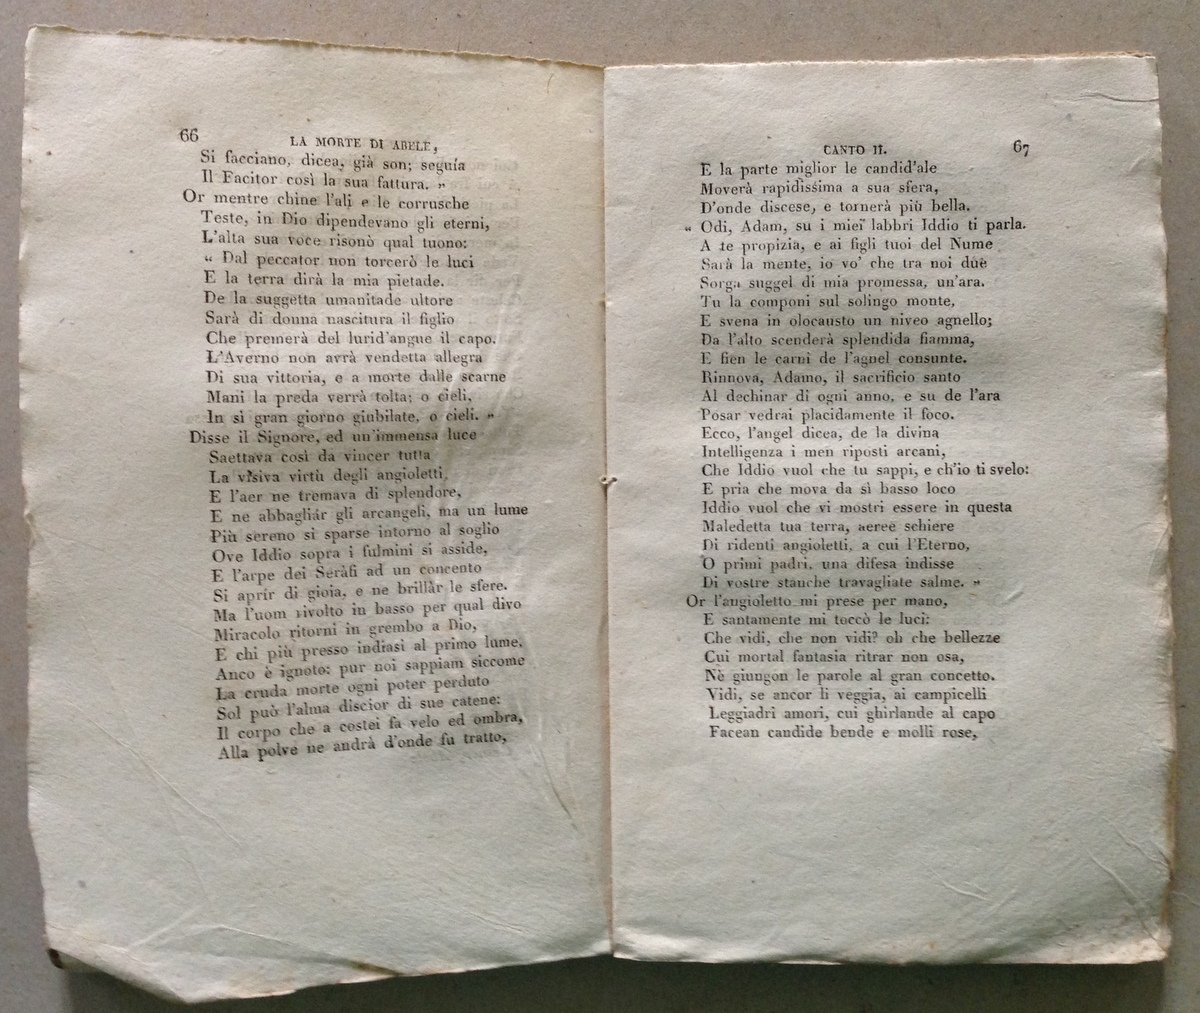 66
LA MORTE DI ABELE,
Si facciano, dicea, già son; seguía
Il Facitor così la sua fattura. »
Or mentre chine l'ali e le corrusche
Teste, in Dio dipendevano gli eterni,
L'alta sua voce risonò qual tuono:
« Dal peccator non torcerò le luci
E la terra dirà la mia pietade.
De la suggetta umanitade ultore
Sarà di donna nascitura il figlio
Che premerà del lurid'angue il capo.
L'Averno non avrà vendetta allegra
Di sua vittoria, e a morte dalle scarne
Mani la preda verrà tolta; o cieli,
In sì gran giorno giubilate, o cieli. »
Disse il Signore, ed un'immensa luce
Saettava così da vincer tutta
La visiva virtù degli angioletti,
E l'aer ne tremava di splendore,
E ne abbagliár gli arcangeli, ma un lume
Più sereno si sparse intorno al soglio
Ove Iddio sopra i fulmini si asside,
E l'arpe dei Seràfi ad un concento
Si aprír di gioia, e ne brillàr le sfere.
Ma l'uom rivolto in basso per qual divo
Miracolo ritorni in grembo a Dio,
E chi più presso indiasi al primo lume,
Anco è ignoto: pur noi sappiam siccome
La cruda morte ogni poter perduto
Sol può l'alma discior di sue catene:
Il corpo che a costei fa velo ed ombra,
Alla polve ne andrà d'onde fu tratto,
CANTO II.
67
E la parte miglior le candid'ale
Moverà rapidissima a sua sfera,
D'onde discese, e tornerà più bella.
« Odi, Adam, su i miei labbri Iddio ti parla.
A te propizia, e ai figli tuoi del Nume
Sarà la mente, io vo' che tra noi due
Sorga suggel di mia promessa, un'ara.
Tu la componi sul solingo monte,
E svena in olocausto un niveo agnello;
Da l'alto scenderà splendida fiamma,
E fien le carni de l'agnel consunte.
Rinnova, Adamo, il sacrificio santo
Al dechinar di ogni anno, e su de l'ara
Posar vedrai placidamente il foco.
Ecco, l'angel dicea, de la divina
Intelligenza i men riposti arcani,
Che Iddio vuol che tu sappi, e ch'io ti svelo:
E pria che mova da sì basso loco
Iddio vuol che vi mostri essere in questa
Maledetta tua terra, aeree schiere
Di ridenti angioletti, a cui l'Eterno,
O primi padri, una difesa indisse
Di vostre stanche travagliate salme. »
Or l'angioletto mi prese per mano,
E santamente mi toccò le luci:
Che vidi, che non vidi? oh che bellezze
Cui mortal fantasia ritrar non osa,
Nè giungon le parole al gran concetto.
Vidi, se ancor li veggia, ai campicelli
Leggiadri amori, cui ghirlande al capo
Facean candide bende e molli rose,